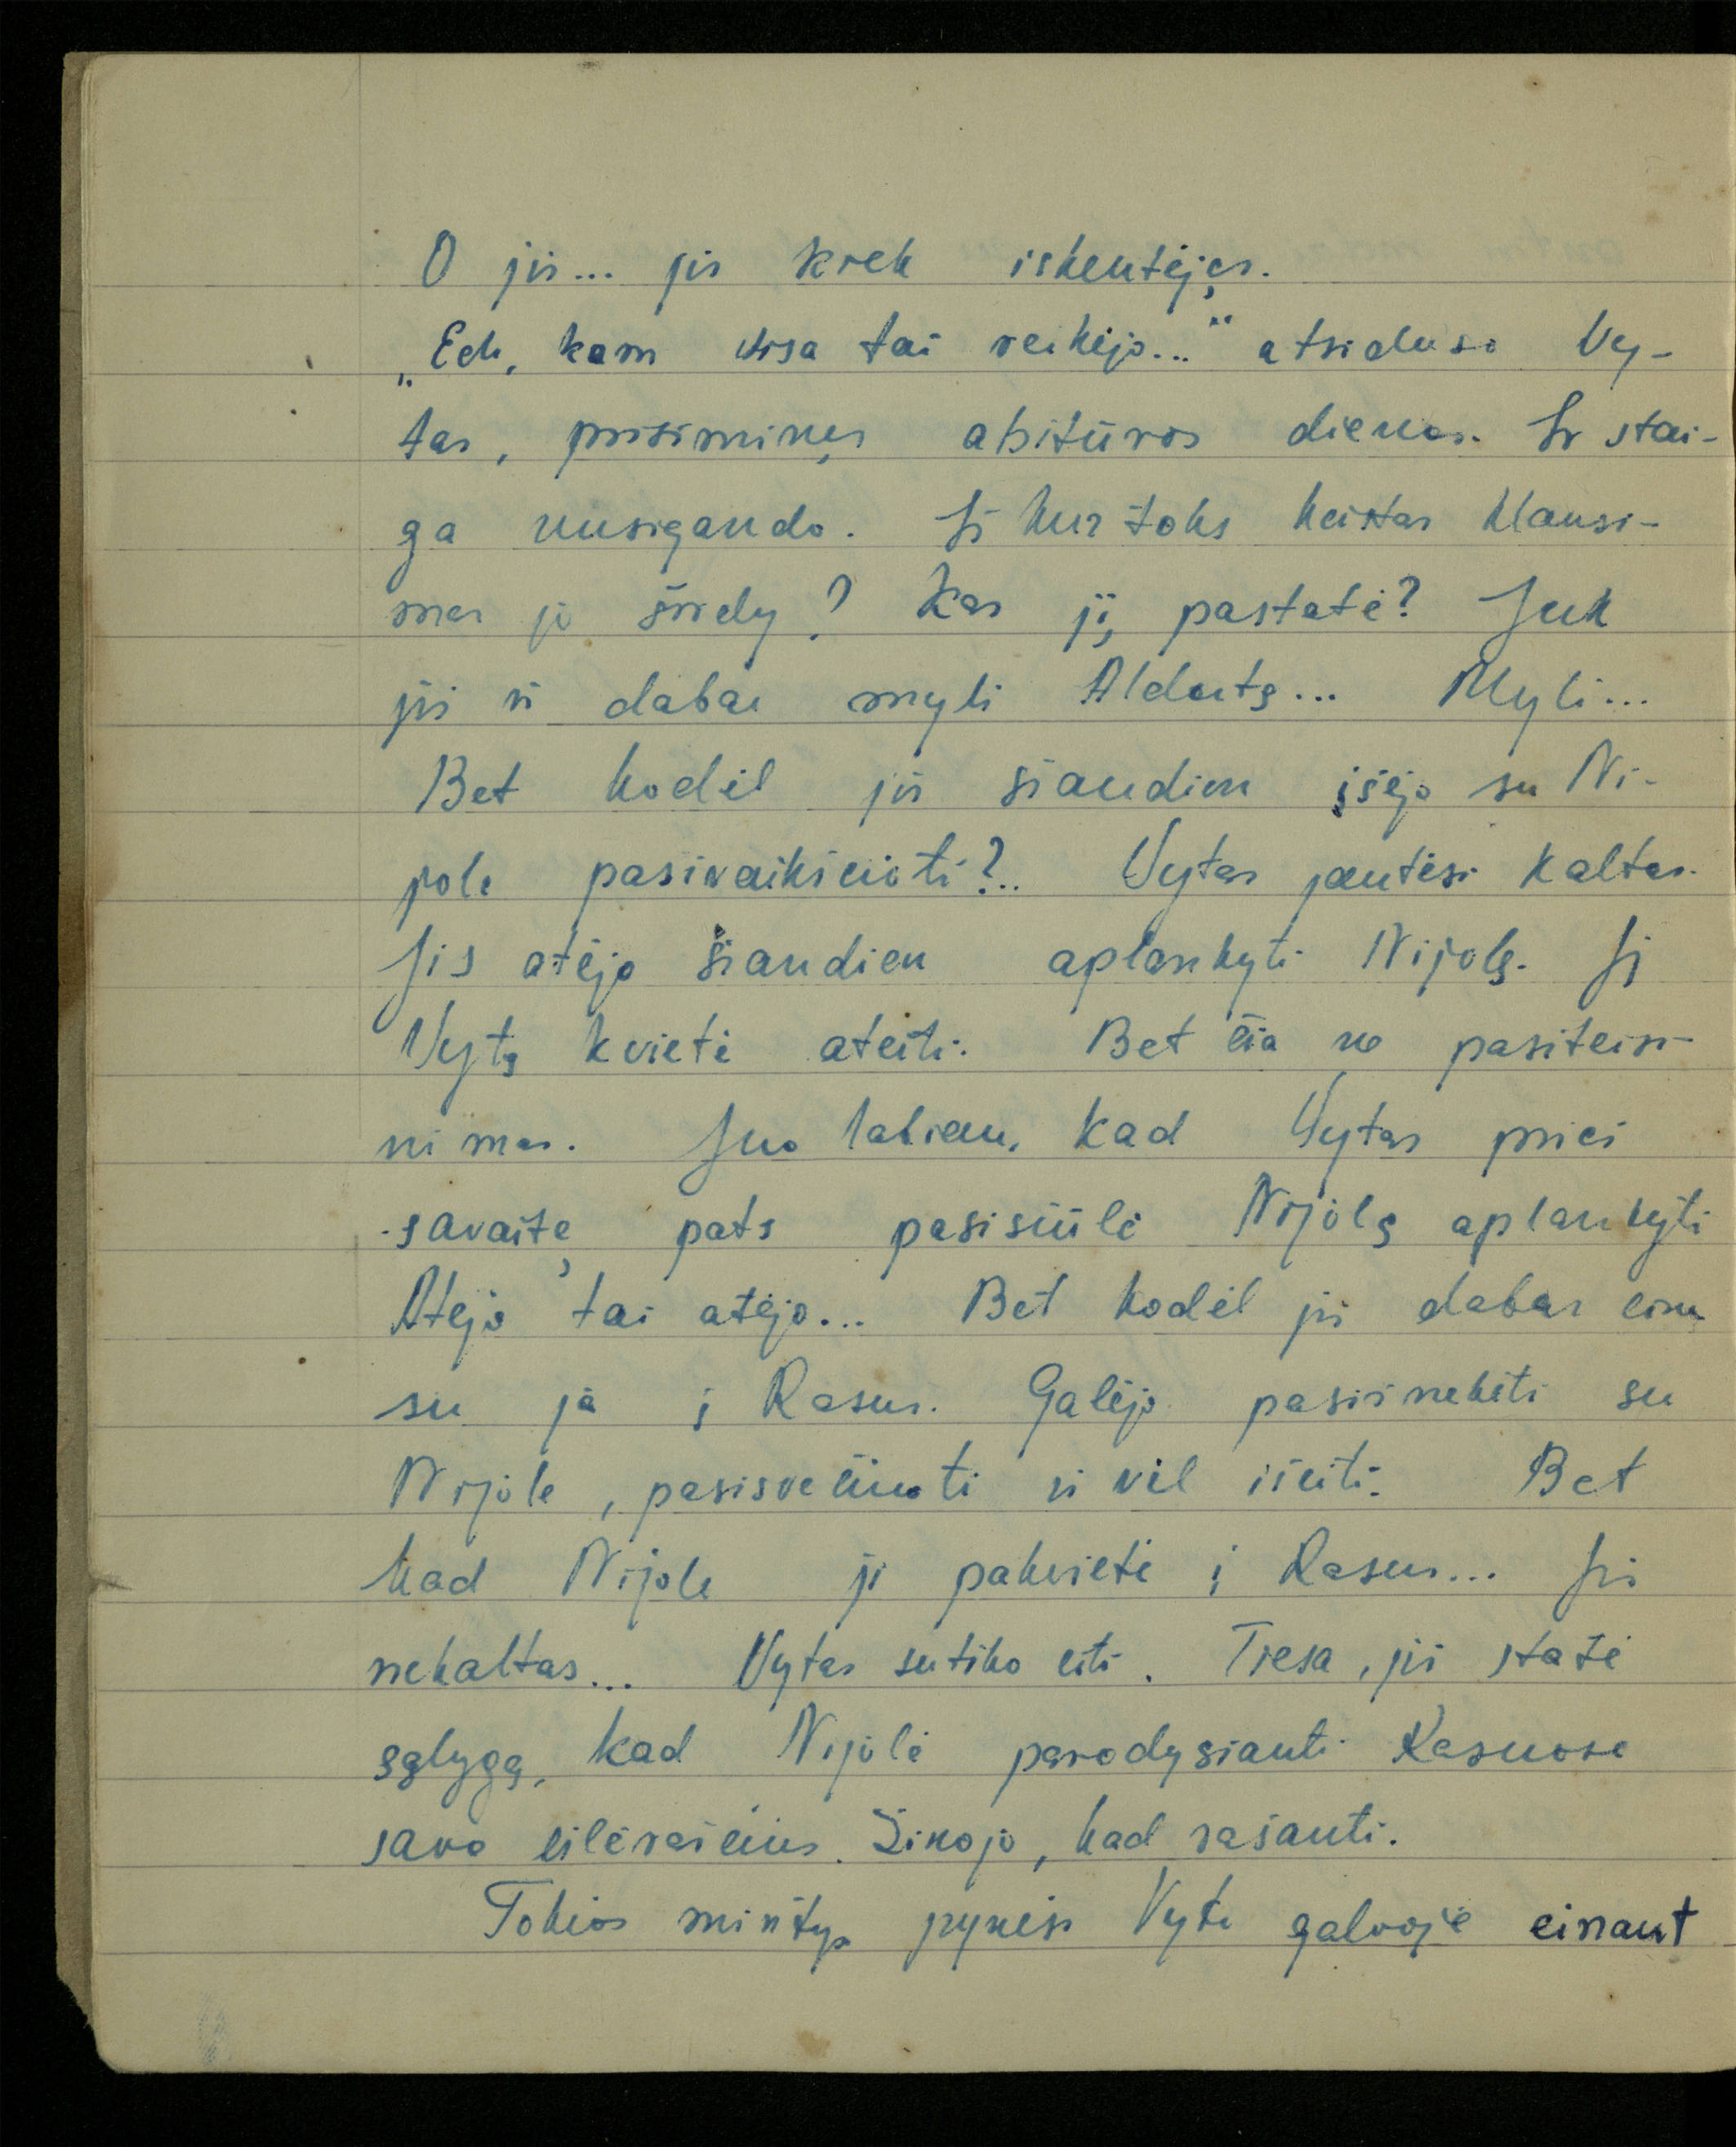 O jis... jis kiek iškentėjęs.
„Ech, kam visa tai reikėjo..." atsiduso Vy-
tas, prisiminęs abitūros dienas. Ir stai-
ga nusigando. Iš kur toks keistas klausi-
mas jo širdy? Kas jį pastatė? Juk
jis ir dabar myli Aldutę... Myli...
Bet kodėl jis šiandien išėjo su Ni-
jole pasivaikščioti?.. Vytas jautėsi kaltas.
Jis atėjo šiandien aplankyti Nijolę. Ji
Vytą kvietė ateiti. Bet čia ne pasiteisi-
nimas. Juo labiau, kad Vytas prieš
savaitę pats pasisiūlė Nijolę aplankyti
Atėjo tai atėjo... Bet kodėl jis dabar eina
su ja į Rasus. Galėjo pasišnekėti su
Nijole, pasisvečiuoti ir vėl išeiti. Bet
kad Nijolė jį pakvietė į Rasus... Jis
nekaltas... Vytas sutiko eiti. Tiesa, jis statė
sąlygą, kad Nijolė parodysianti Rasuose
savo eilėraščius. Žinojo, kad rašanti.
Tokios mintys pynėsi Vyto galvoje einant